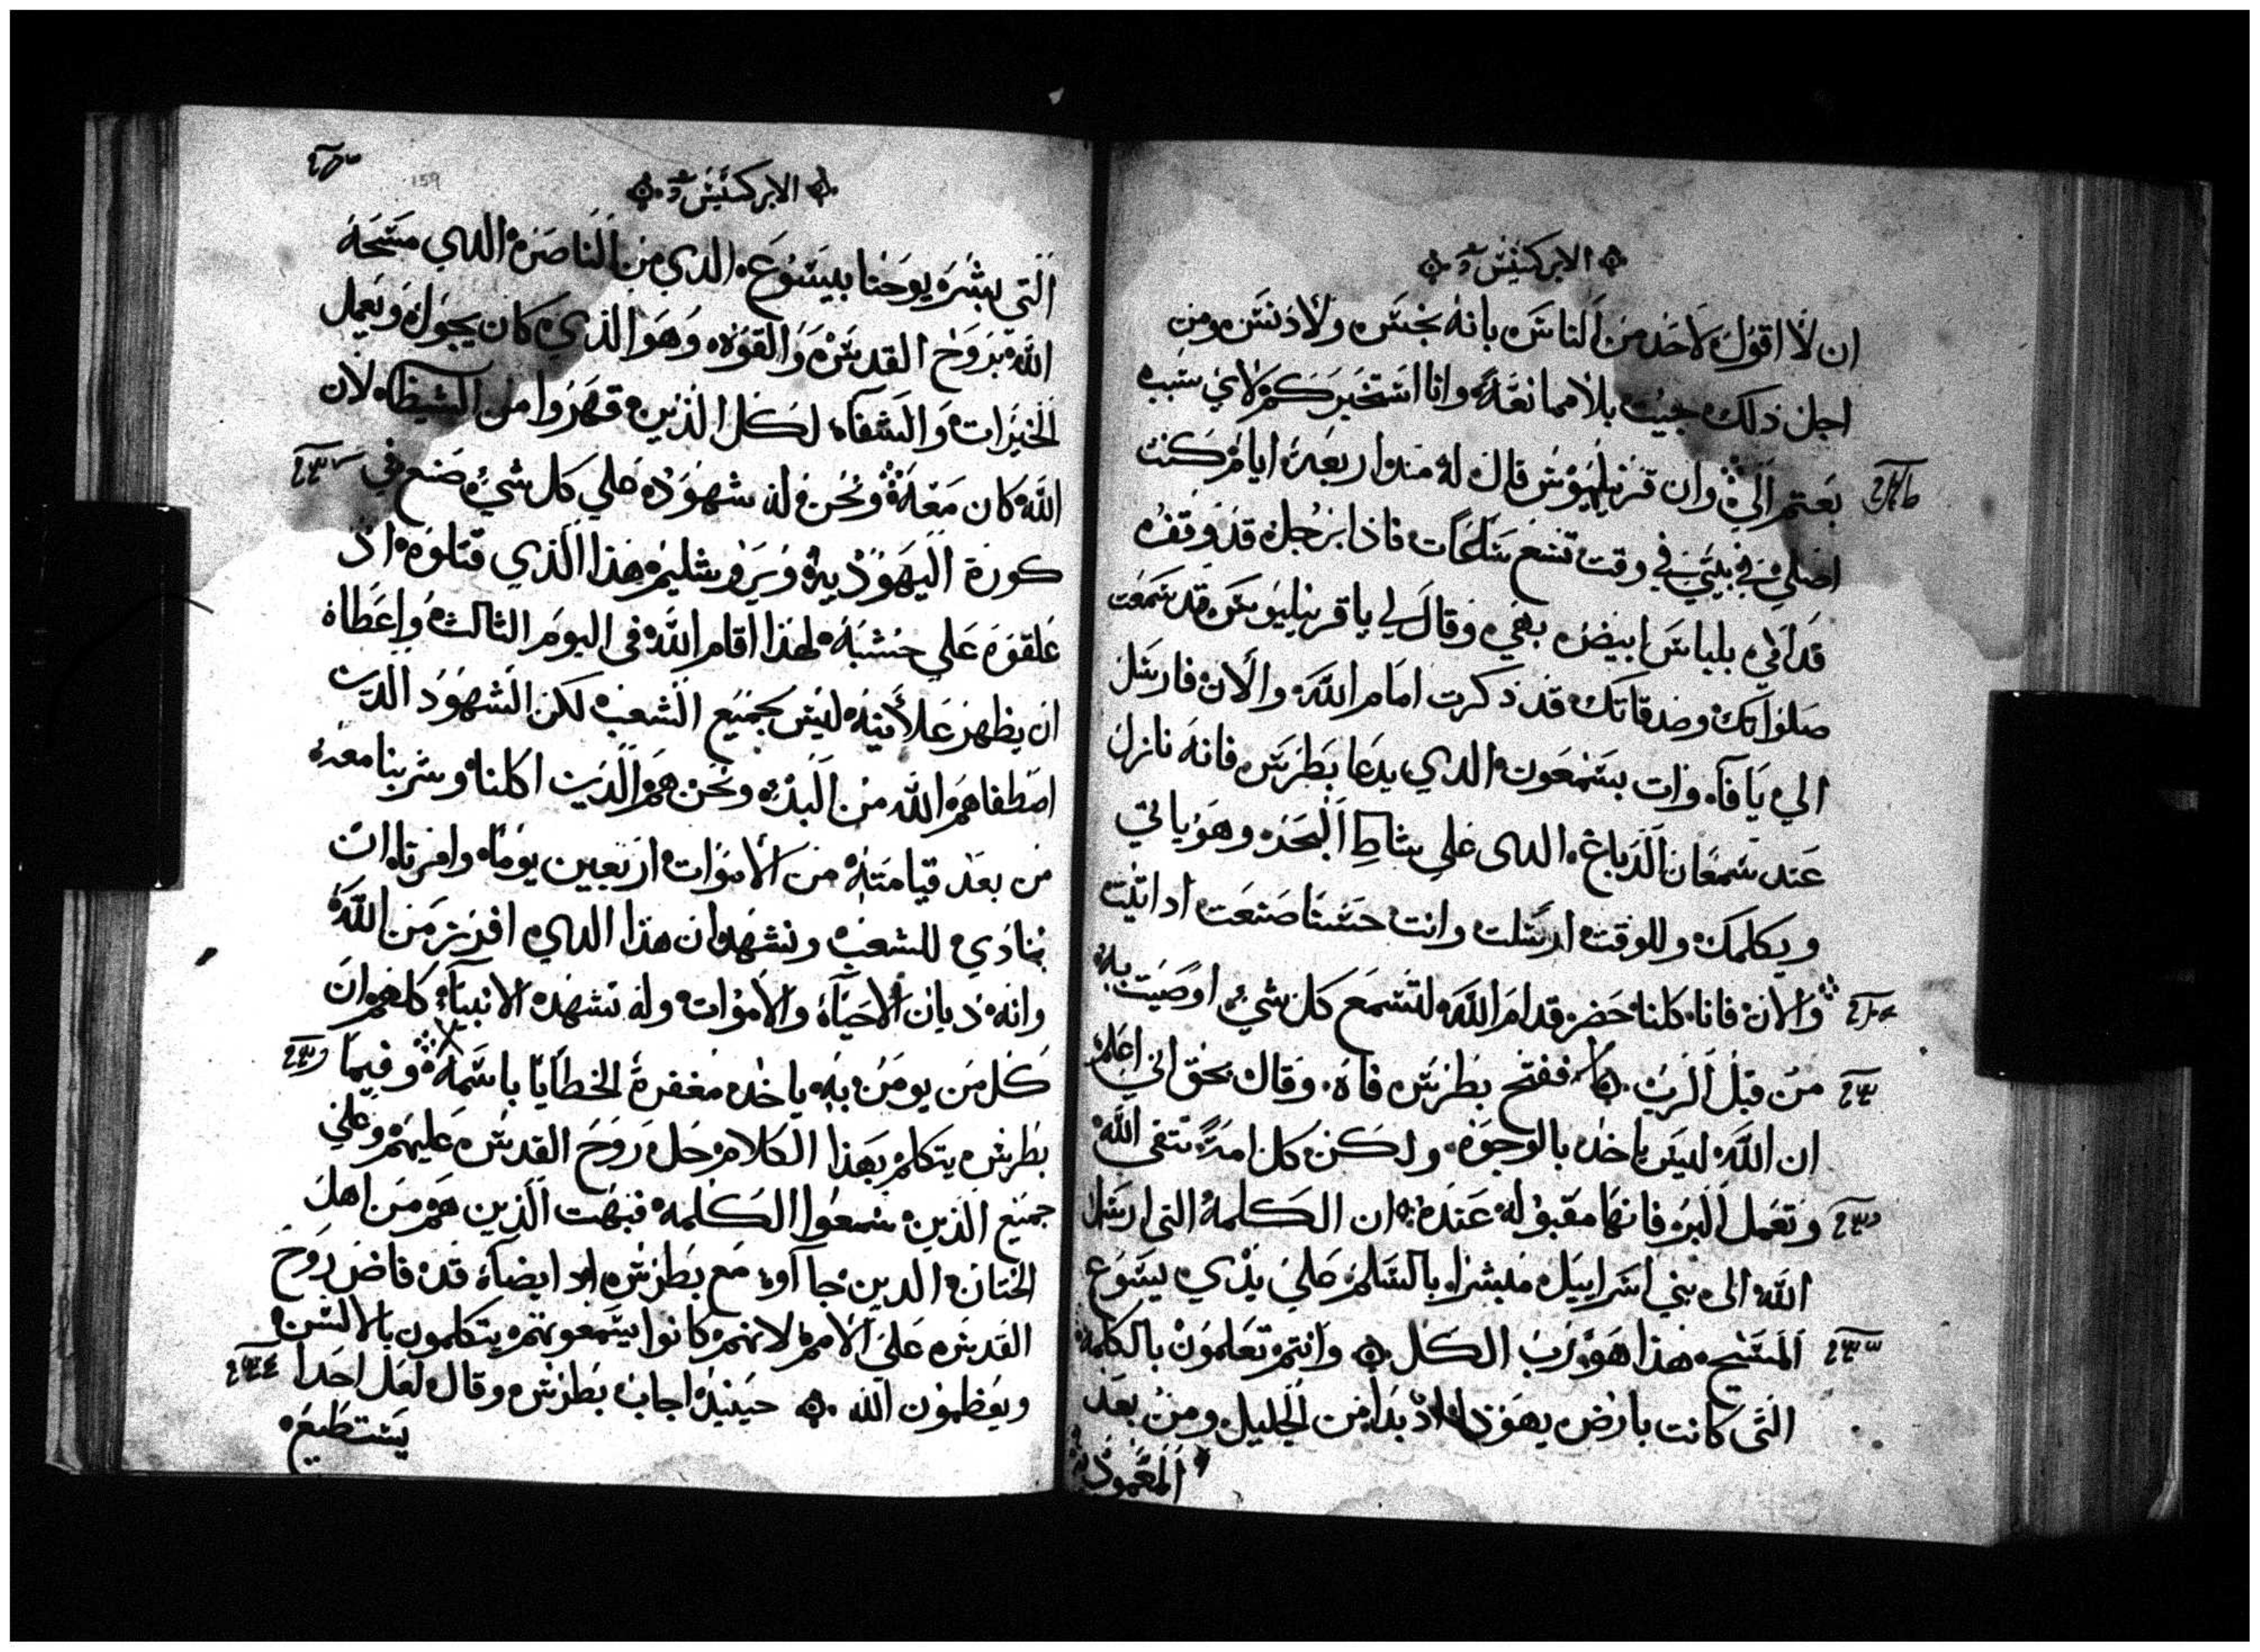 الابركسيس
ان لا اقول لاحد من الناس بانه نجس ولا دنس ومن
اجل ذلك جيت بلا ممانعة وانا استخبركم لاي سبب
بعتم الي وان قرنيليوس قال له مند اربعة ايام كنت
اصلي في بيتي في وقت تسع ساعات فاذا برجل قد وقف
قدامي بلباس ابيض بهي وقال لي يا قرنيليوس قد سمعت
صلواتك وصدقاتك قد ذكرت امام الله والان فارسل
الي يافا وات بسمعون الدي يدعا بطرس فانه نازل
عند سمعان الدباغ الدي علي شاط البحر وهو ياتي
ويكلمك وللوقت ارسلت وانت حسنا صنعت اد اتيت
والان فانا كلنا حضر قدام الله لنسمع كل شي اوصيت به
من قبل الرب ففتح بطرس فاه وقال بحق اني اعلم
ان الله ليس ياخد بالوجوه ولكن كل امة تتقي الله
وتعمل البر فانها مقبوله عنده ان الكلمة التي ارسل
الله الى بني اسراييل مبشرا بالسلم علي يدي يسوع
المسيح هذا هو رب الكل وانتم تعلمون بالكلمة
التي كانت بارض يهودا اذ بدا من الجليل ومن بعد
المعمودية
الابركسيس
159
التي بشر يوحنا بيسوع الدي من الناصرة الدي مسحه
الله بروح القدس والقوه وهو الذي كان يجول ويعمل
الخيرات والشفاء لكل الذين قهروا من الشيطان لان
الله كان معه ونحن له شهود علي كل شي صنع في
كورة اليهودية ويروشليم هذا الذي قتلوه اذ
علقوه علي خشبة لهذا اقام الله في اليوم الثالث واعطاه
ان يظهر علانية ليس لجميع الشعب لكن الشهود الدين
اصطفاهم الله من البدء ونحن هم الدين اكلنا وشربنا معه
من بعد قيامته من الاموات اربعين يوما وامرنا ان
ننادي للشعب ونشهد ان هذا الدي افرز من الله
وانه ديان الاحياء والاموات وله تشهد الانبياء كلهم ان
كل من يومن به ياخد مغفرة الخطايا باسمه وفيما
بطرس يتكلم بهذا الكلام حل روح القدس عليهم وعلي
جميع الذين سمعوا الكلمه فبهت الذين هم من اهل
الختان الدين جااوا مع بطرس اد ايضا قد فاض روح
القدس علي الامم لانهم كانوا يسمعونهم يتكلمون بالالسن
ويعظمون الله حينيذ اجاب بطرس وقال لعل احدا
يستطيع